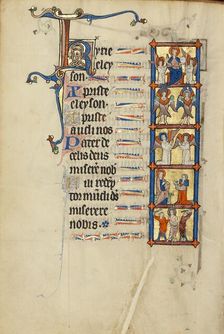 Kyrie
eley
son. 
Xpriste
eleyson.
Xpriste
audi nos
Pater de
celis deus
miserere nob
Fili redep
tor mundi deus
miserere
nobis.